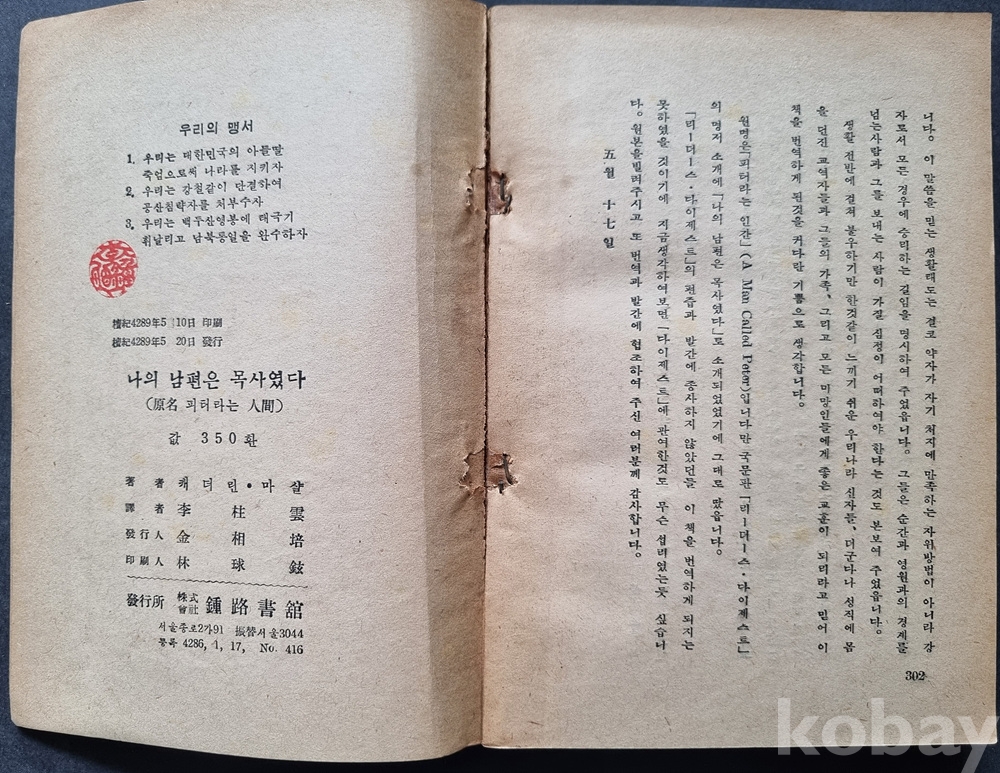 니다。이 말씀을 믿는 생활태도는 결코 약자가 자기 처지에 만족하는 자위방법이 아니라 강
자로서 모든 경우에 승리하는 길임을 명시하여 주었읍니다。그들은 순간과 영원과의 경계를
넘는사람과 그를 보내는 사람이 가질 심정이 어떠하여야 한다는 것도 본보여 주었읍니다。
생활 전반에 걸쳐 불우하기만 한것같이 느끼기 쉬운 우리나라 신자들、더군다나 성직에 몸
을 던진 교역자들과 그들의 가족、그리고 모든 미망인들에게 좋은 교훈이 되리라고 믿어 이
책을 번역하게 된것을 커다란 기쁨으로 생각합니다。
원명은「피터라는 인간」(A Man Called Peter)입니다만 국문판「리ー더ー스・다이제스트」
의 명저 소개에「나의 남편은 목사였다」로 소개되었었기에 그대로 땄읍니다。
「리ー더ー스・다이제스트」의 편즙과 발간에 종사하지 않았던들 이 책을 번역하게 되지는
못하였을 것이기에 지금생각하여보면「다이제스트」에 관여한것도 무슨 섭리였는듯 싶습니
다。원본을빌려주시고 또 번역과 발간에 협조하여 주신 여러분께 감사합니다。
五월 十七일
302
우리의 맹서
1. 우리는 대한민국의 아들딸
죽엄으로써 나라를 지키자
2. 우리는 강철같이 단결하여
공산침략자를 처부수자
3. 우리는 백두산영봉에 태극기
휘날리고 남북통일을 완수하자
檀紀4289年5 10日 印刷
檀紀4289年5 20日 發行
나의 남편은 목사였다
(原名 피터라는 人間)
값 350환
著者 캐더린・마샬
譯者 李柱雲
發行人 金相培
印刷人 林球鉉
發行所 株式會社 鍾路書舘
서울종로2가91 振替서울3044
등록 4286, 1, 17, No. 416
kobay